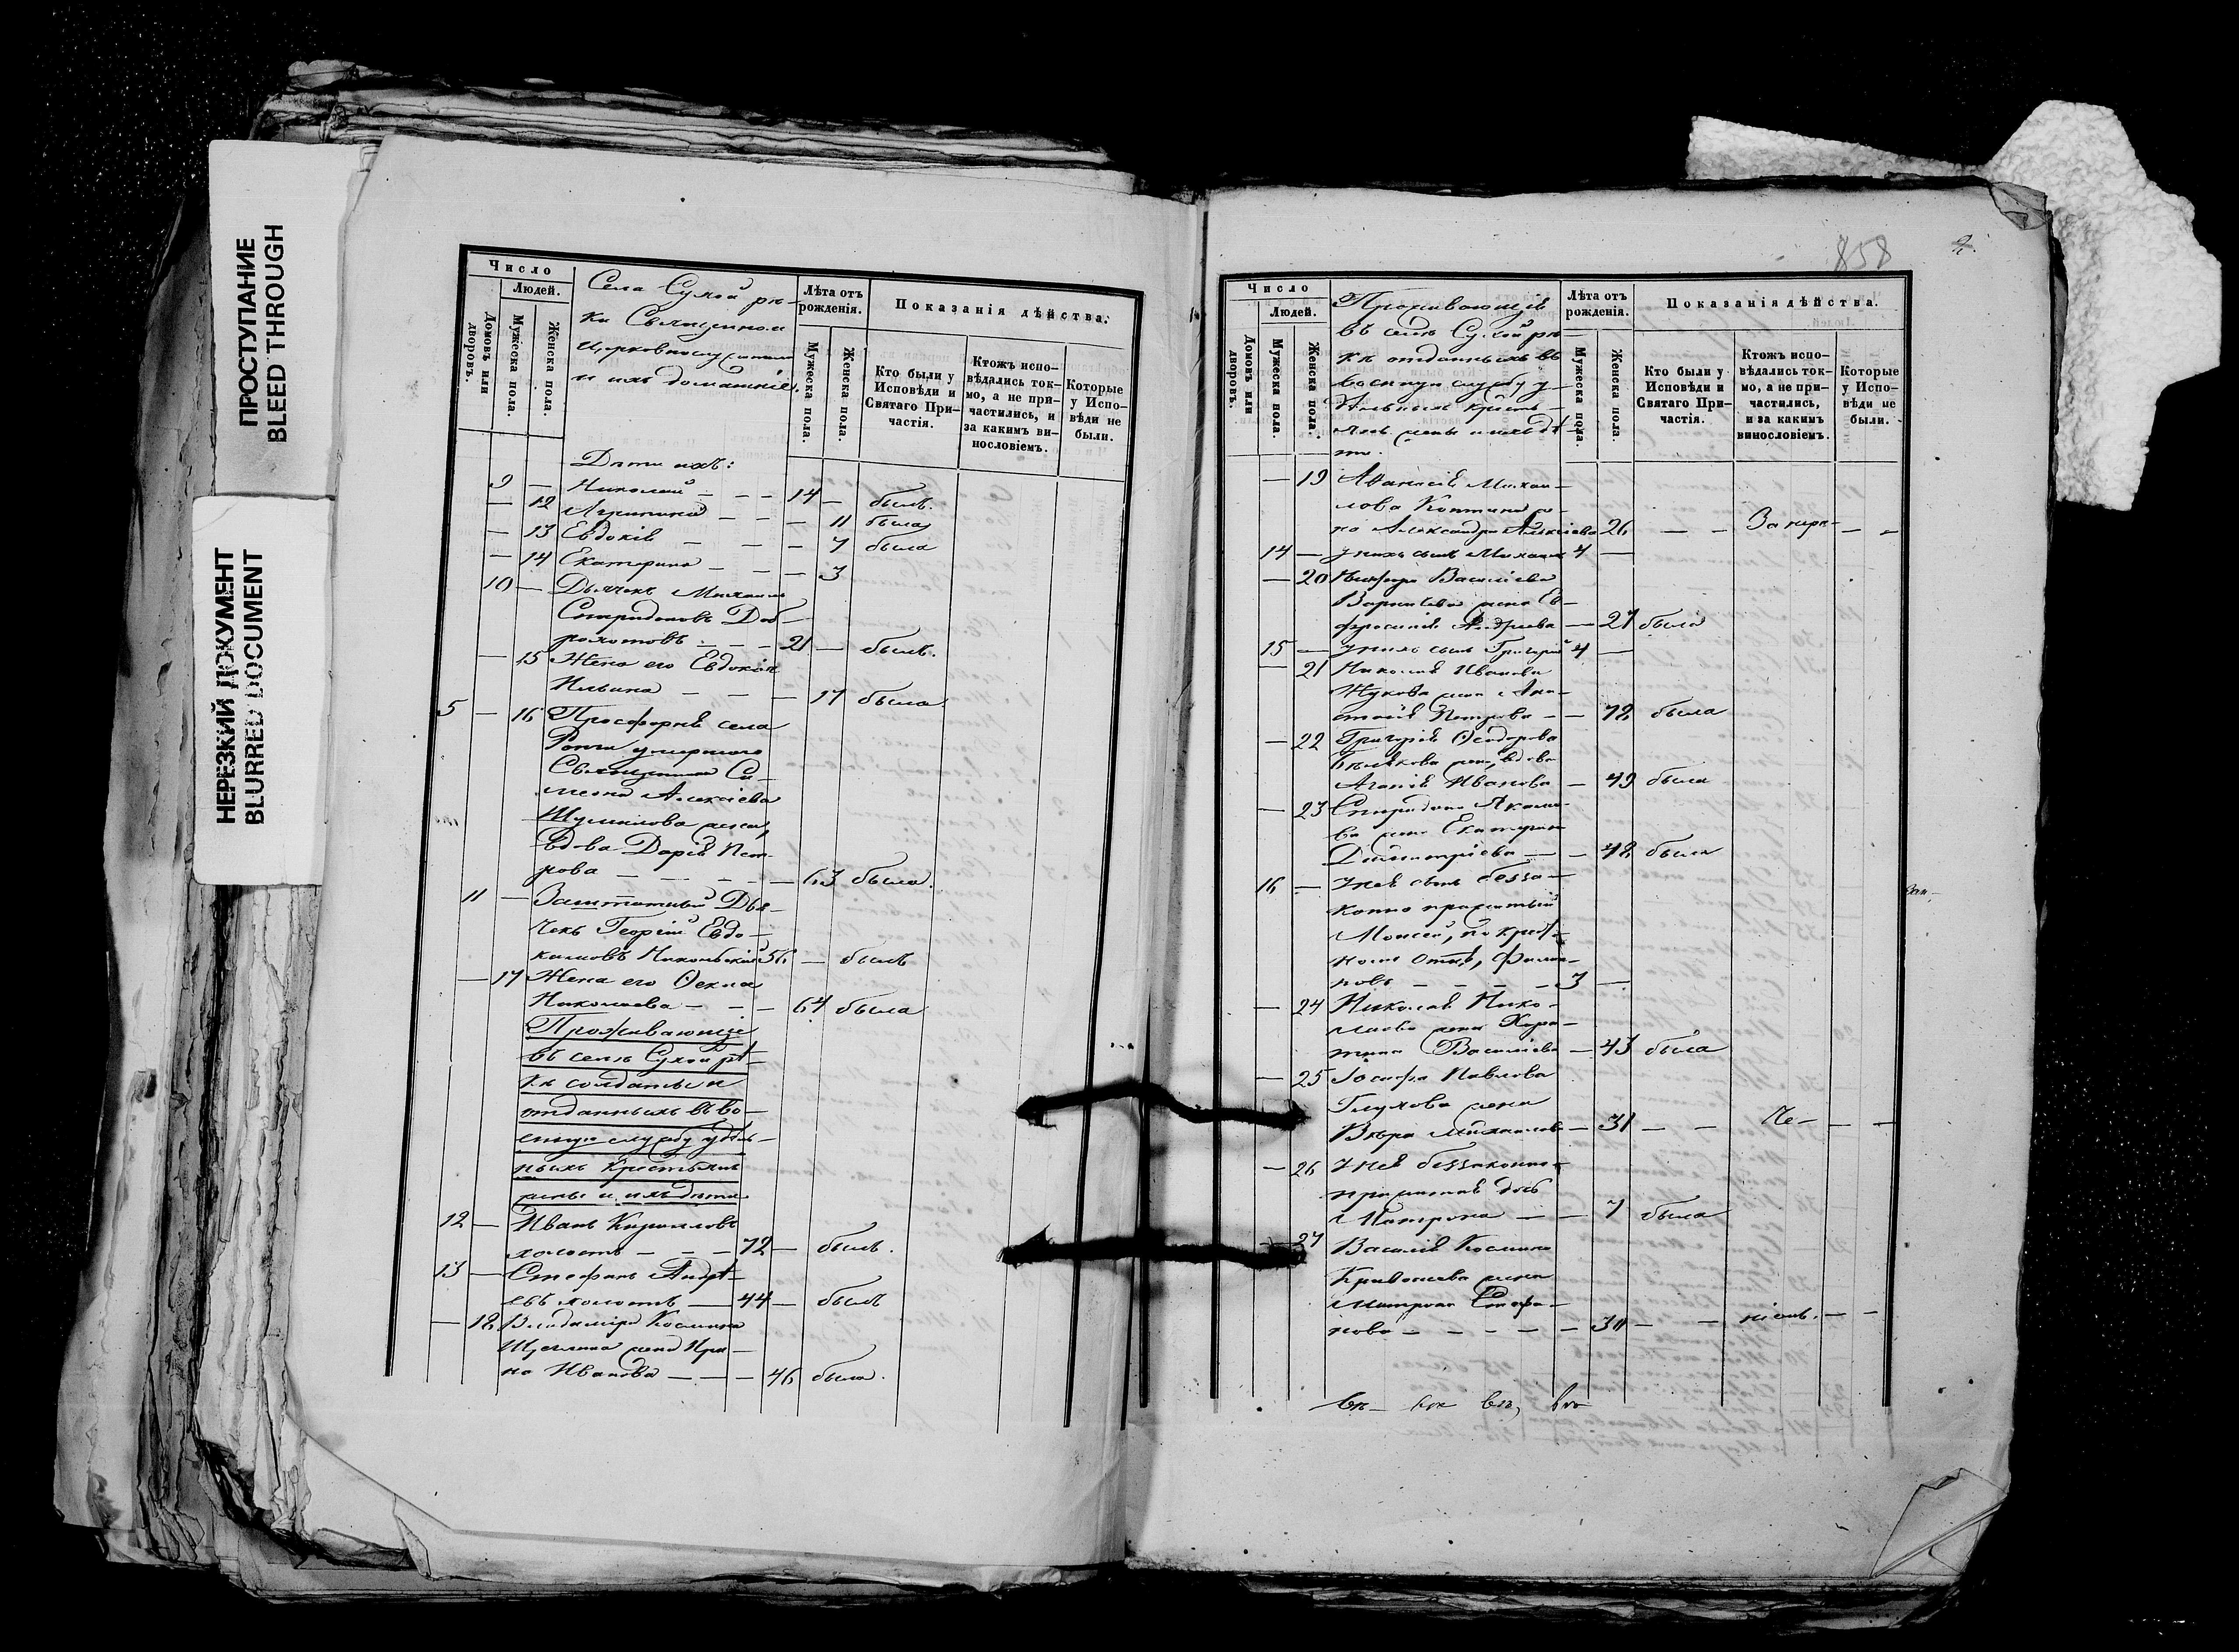 ПРОСТУПАНИЕ
BLEED THROUGH
НЕРЕЗКИЙ ДОКУМЕНТ
BLURRED DOCUMENT
Число
Людей.
Домовъ или дворовъ.
Мужеска пола.
Женска пола.
Села Сухой рѣ-
ки
церковно
и ихъ домашніе.
Лѣта отъ рожденія.
Мужеска пола.
Женска пола.
Показанія дѣйства.
Кто были у Исповѣди и Святаго При-частія.
Ктожъ испо-вѣдались ток-мо, а не при-частились, и за какимъ ви-нословіемъ.
Которые у Испо-вѣди не были.
Дѣти ихъ:
9 — Николай — — — 14 — былъ.
— 12 Агрипина — — — 11 была
— 13 Евдокія — — — 7 была
— 14 Екатерина — — — 3
10 — Дьячекъ Михаилъ
Спиридоновъ Доб-
— — — 21 — былъ.
— 15 Жена его Евдокія
Ильина — — — 17 была
5 — 16 Просфорня села
умершаго
Священника Си-
меона Алексіева
Шумилова жена,
вдова Дарія Пет-
рова — — — 63 была.
11 — Заштатный Дья-
чекъ Георгій Евдо-
кимовъ Никольскій 56 — былъ
— 17 Жена его Ѳекла
Николаева — — — 64 была
Проживающіе
въ селѣ Сухой рѣ-
кѣ солдаты и
отданныхъ въ во-
енную службу удѣль-
ныхъ крестьянъ
жены и ихъ дѣти
12 — Иванъ Кирилловъ
холостъ — — — 72 — былъ.
13 — Стефанъ Андрѣ-
евъ холостъ — 44 — былъ
— 18 Владиміра Космина
жена Ири-
на Иванова — — — 46 была.
858
2.
Число
Людей.
Домовъ или дворовъ.
Мужеска пола.
Женска пола.
Проживающіе
въ селѣ Сухой рѣ-
кѣ отданныхъ въ
военную службу у-
дѣльныхъ кресть-
янъ жены и ихъ дѣ-
ти.
Лѣта отъ рожденія.
Мужеска пола.
Женска пола.
Показанія дѣйства.
Кто были у Исповѣди и Святаго При-частія.
Ктожъ испо-вѣдались ток-мо, а не при-частились, и за какимъ винословіемъ.
Которые у Испо-вѣди не были.
— 19 Аѳанасія Михаи-
лова Коптина же-
на Александра Алексіева 26 — — За нера- — —
14 — у нихъ сынъ Михаилъ 4 —
— 20 Василіева
жена Ев-
фросинія Андреева — 27 была
15 — у нихъ сынъ Григорій 4 —
— 21 Николая Иванова
Жукова жена Ана-
стасія Петрова — — 72 была
— 22 Григорія Ѳеодорова
Бѣлякова жена, вдова
Агапія Иванова — 49 была
— 23 Спиридона Яковле-
ва жена Екатерина
Димитріева — — 48 была
16 — У нея сынъ безза-
конно прижитый
Моисей, по крест-
номъ отцѣ, Филип-
повъ — — — — 3 —
— 24 Николая Нико-
лаева жена Хари-
тина Василіева — 43 была
— 25 Іосифа Павлова
Глухова жена
Вѣра Михаилова — 31 — — Че- — —
— 26 У нея беззаконно
прижитая дочь
Матрона — — 7 была
— 27 Василія Космина
Кривошеева жена
Матрона Стефа-
нова — — — — — 30 — — ніемъ. — —